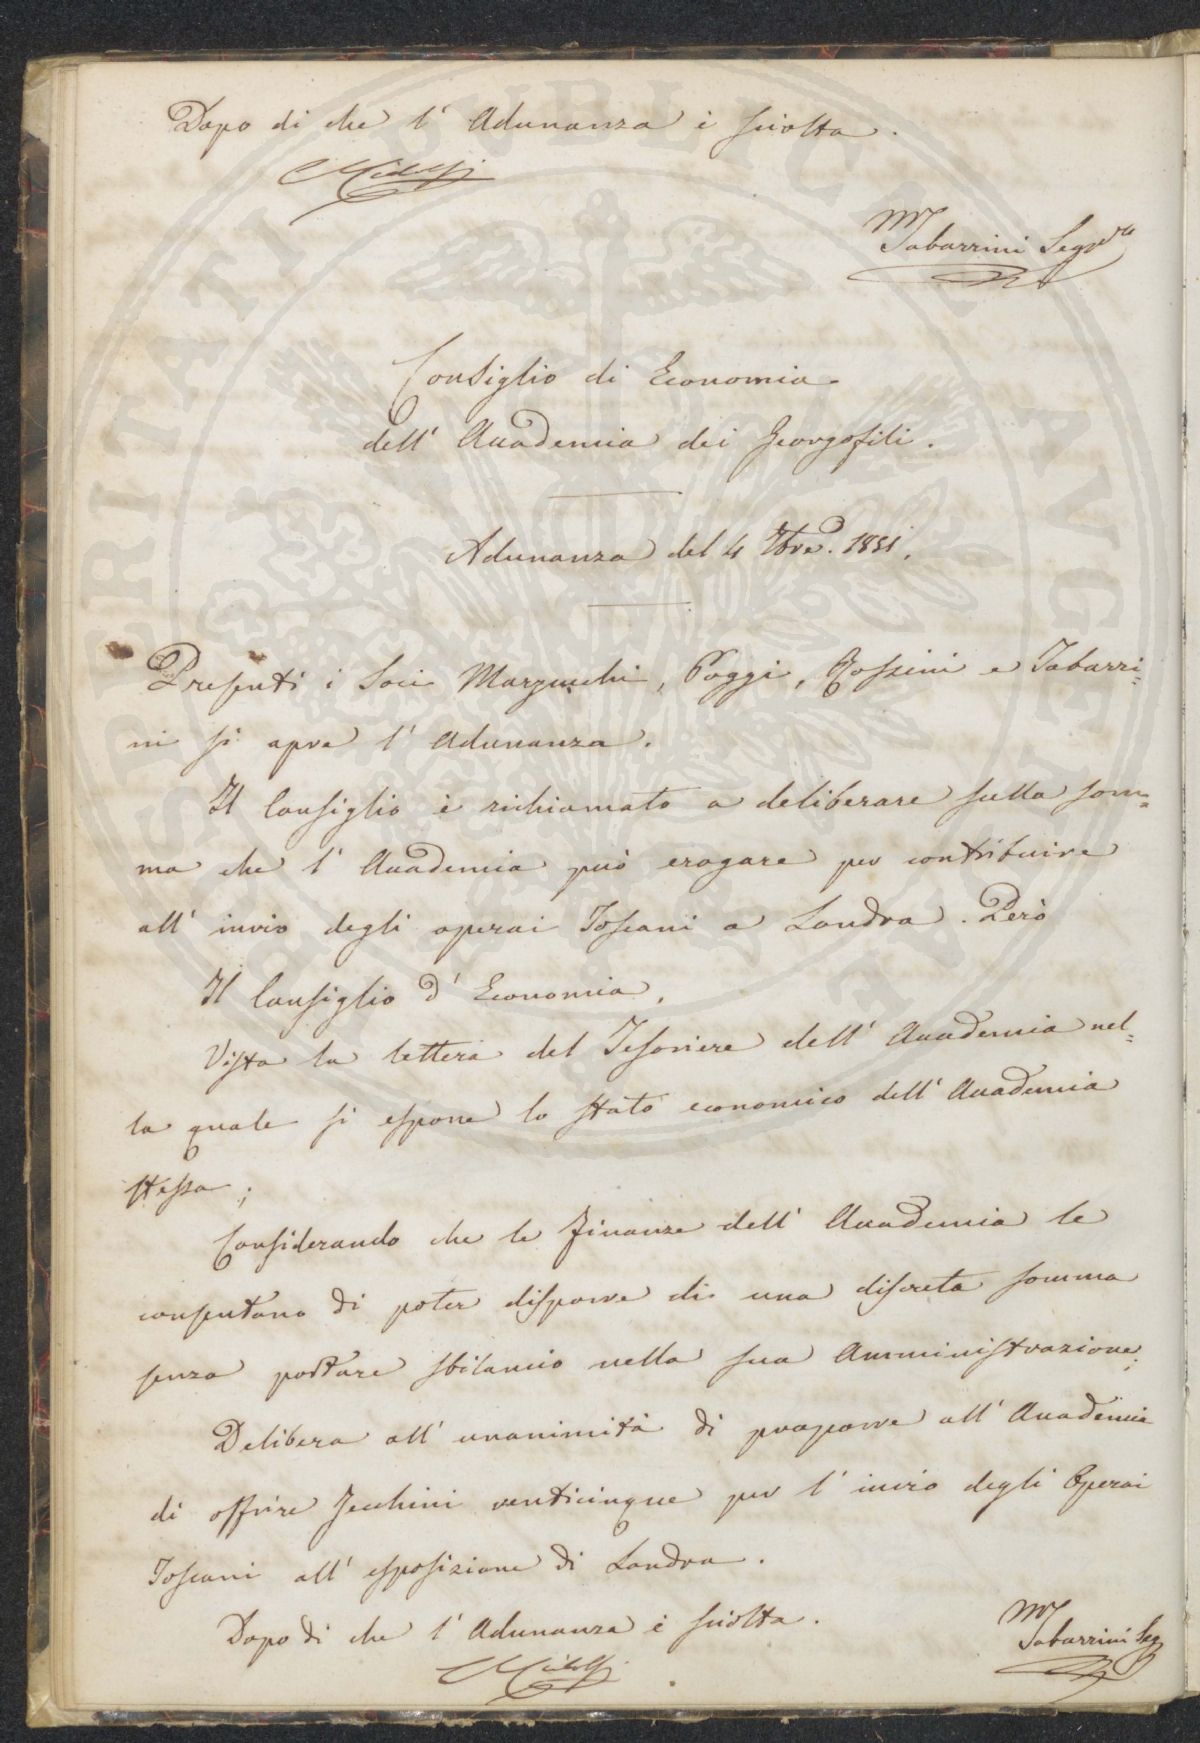 Dopo di che l' Adunanza è sciolta.
CRidolfi
M Tabarrini Segrio
Consiglio di Economia
dell' Accademia dei Georgofili.
Adunanza del 4 7bre. 1851.
Presenti i Soci Marzucchi, Poggi, Rossini e Tabarri=
ni si apre l' Adunanza.
Il Consiglio è richiamato a deliberare sulla som=
ma che l' Accademia può erogare per contribuire
all' invio degli operai Toscani a Londra. Però
Il Consiglio d' Economia,
Vista la lettera del Tesoriere dell' Accademia nel=
la quale si espone lo stato economico dell' Accademia
stessa;
Considerando che le finanze dell' Accademia le
consentono di poter disporre di una discreta somma
senza portare sbilancio nella sua Amministrazione;
Delibera all' unanimità di proporre all' Accademia
di offrire Zecchini venticinque per l' invio degli Operai
Toscani all' esposizione di Londra.
Dopo di che l' Adunanza è sciolta.
CRidolfi
M Tabarrini Seg